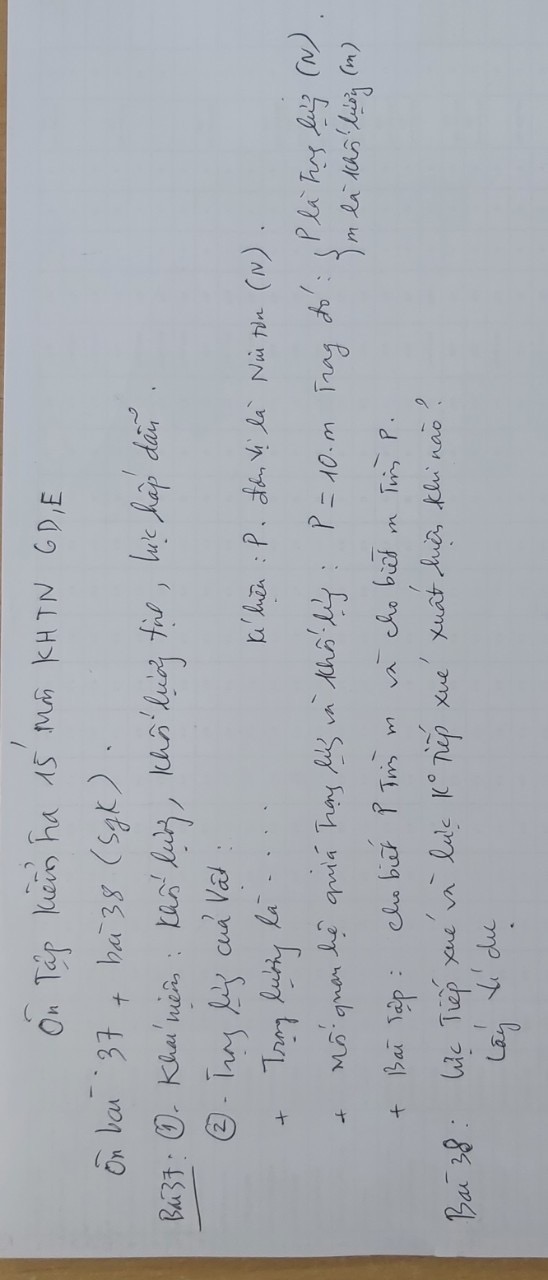 Ôn Tập kiểm tra 15' Môn KHTN 6D,E
Ôn bài 37 + bài 38 (Sgk).
Bài 37: ①. Khái niệm: Khối lượng, khối lượng tịnh, lực hấp dẫn.
② - Trọng lượng của Vật:
+ Trọng lượng là.....
kí hiệu: P. đơn vị là Niu tơn (N).
+ Mối quan hệ giữa Trọng lượng và khối lượng: P = 10.m Trong đó: { P là Trọng lượng (N).
m là khối lượng (m)
+ Bài Tập: cho biết P Tìm m và cho biết m Tìm P.
Bài 38: Lực Tiếp xúc và lực K° Tiếp xúc xuất hiện khi nào?
Lấy Ví dụ.